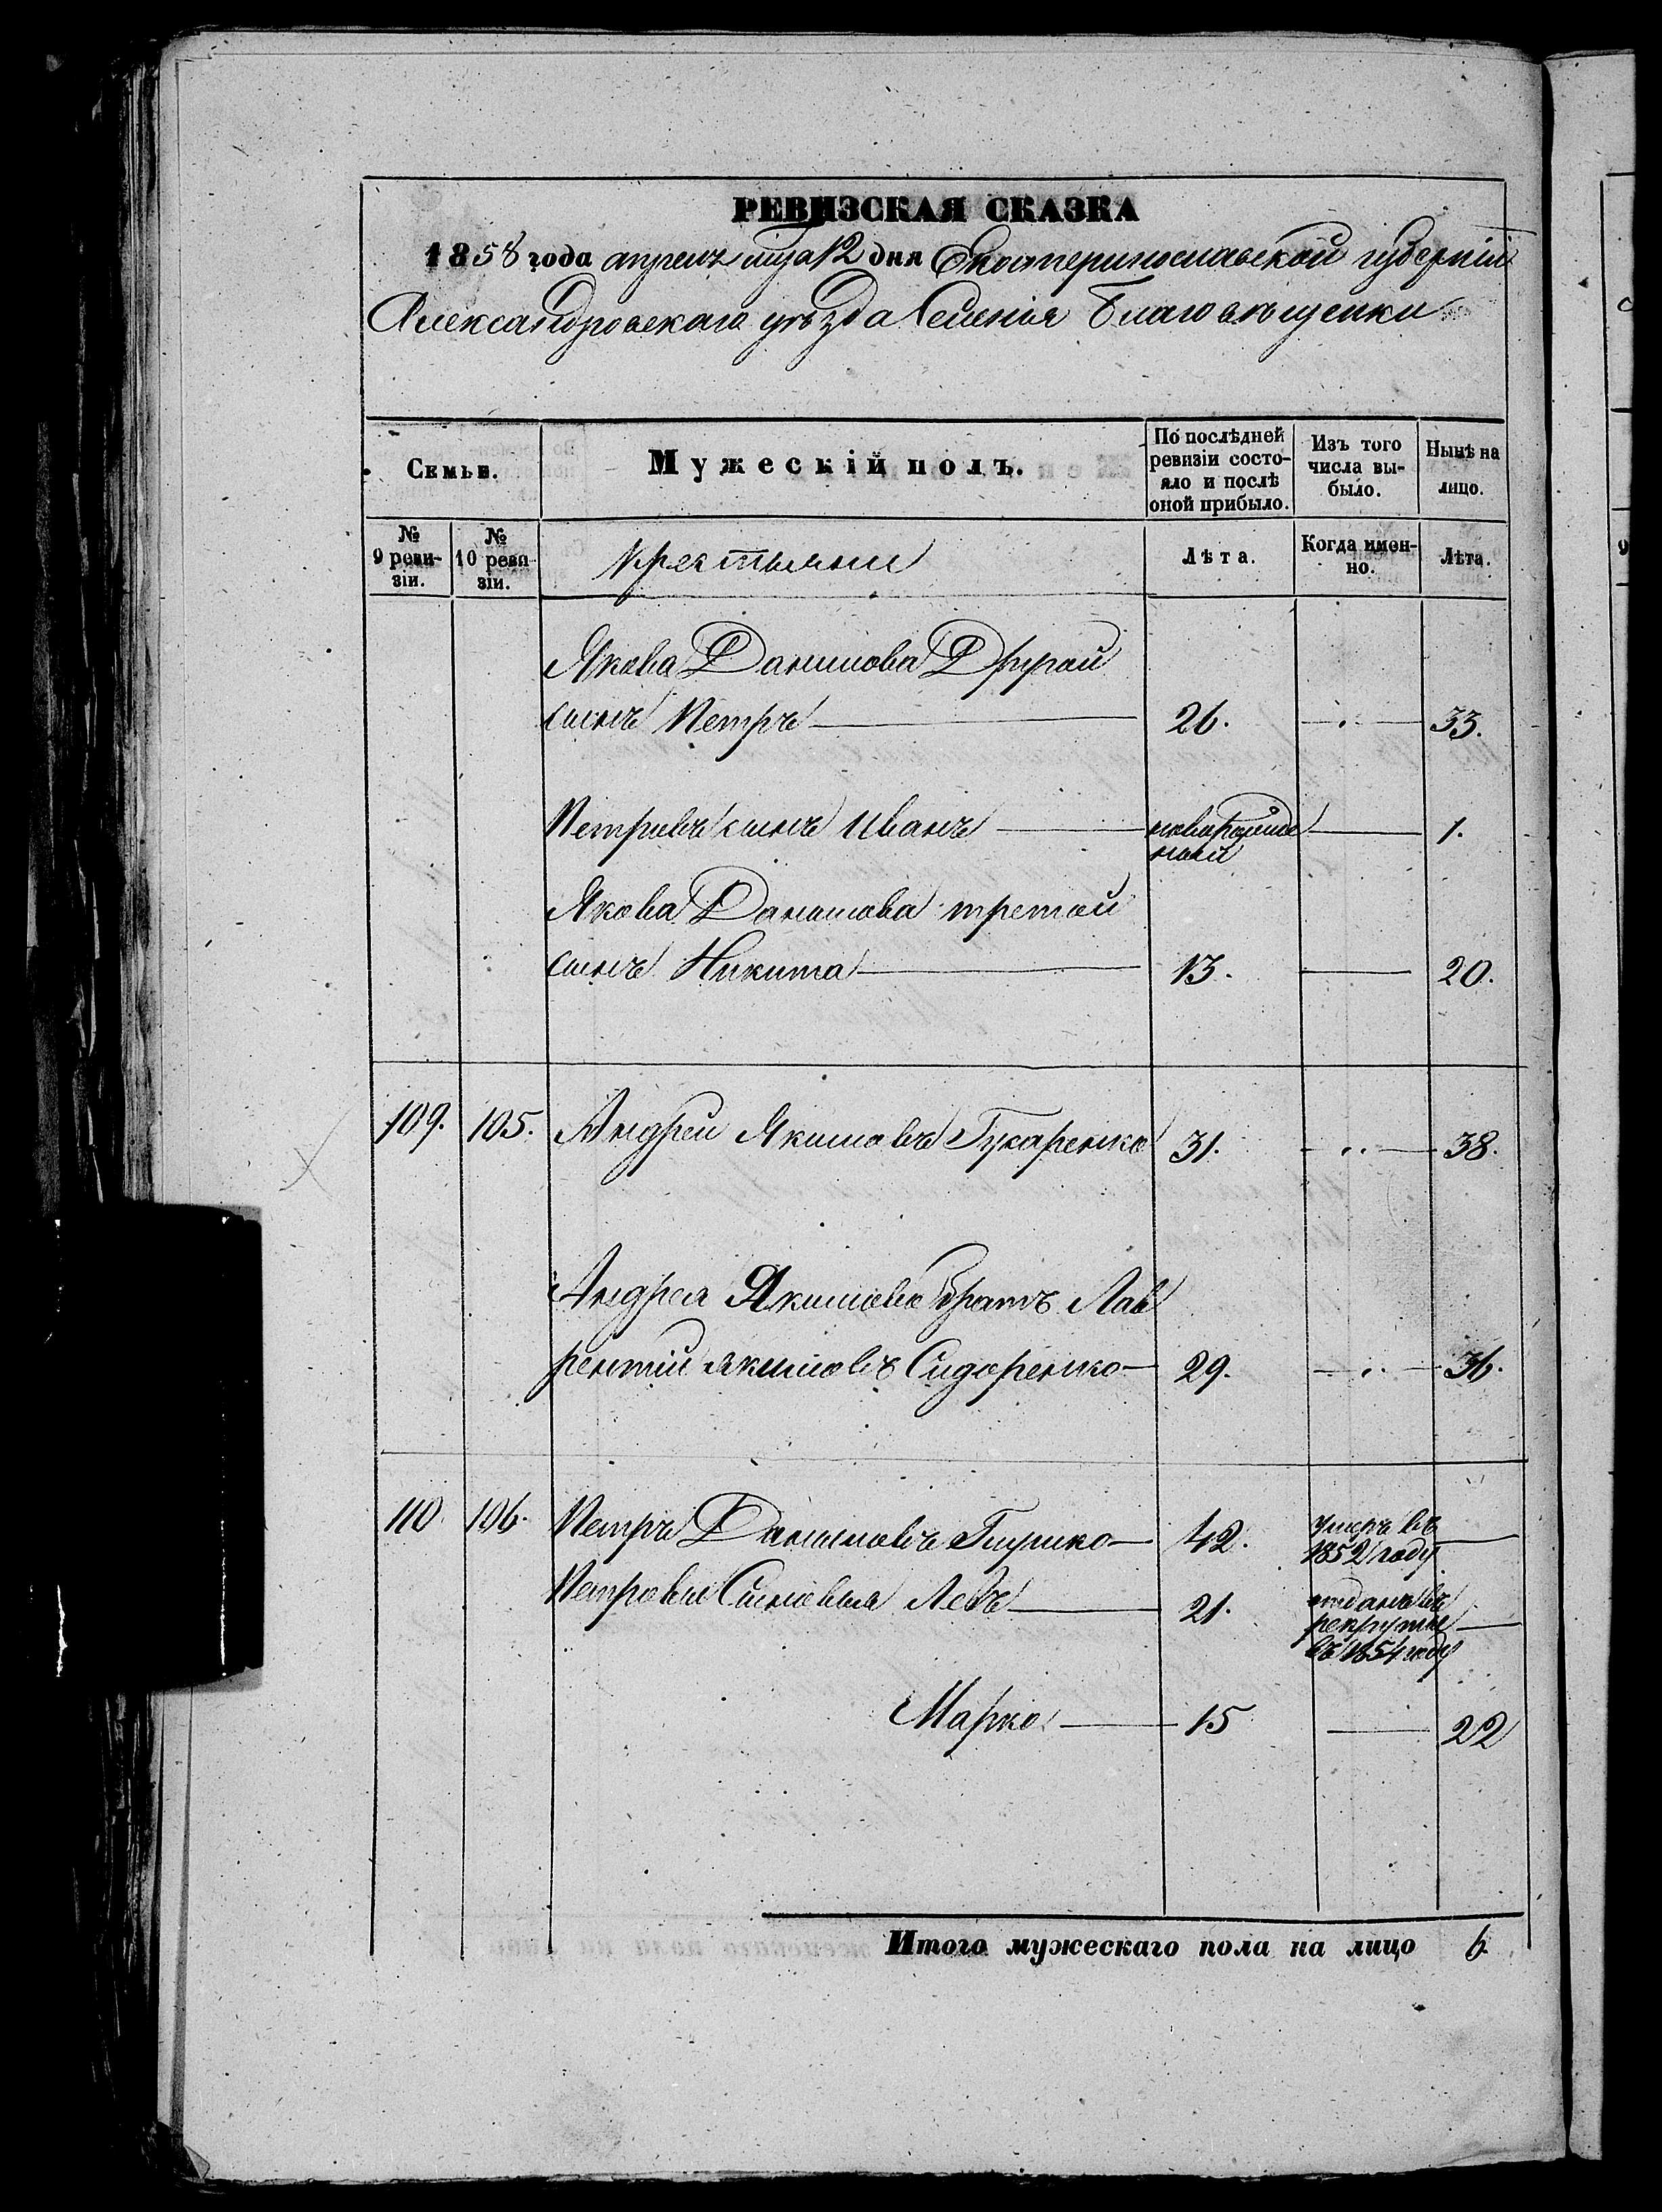 РЕВИЗСКАЯ СКАЗКА
1858 года апреля мца 12 дня Екатеринославской губерніи
Александровскаго уѣзда Селенія Благовѣщенки
Семьи.
Мужескій полъ.
По послѣдней ревизіи состояло и послѣ оной прибыло.
Изъ того числа выбыло.
Нынѣ на лицо.
№ 9 ревизіи.
№ 10 ревизіи.
крестьяне
Лѣта.
Когда именно.
Лѣта.
Якова Данилова Другой
сынъ Петръ 26. 33.
Петровъ сынъ Иванъ новорожденный 1.
Якова Данилова третой
сынъ Никита 13. 20.
109. 105. Андрей Якимовъ 31. 38.
Андрея Якимова братъ Лав
рентий якимовъ Сидоренко 29. 36.
110. 106. Петръ Даниловъ 42. умеръ въ 1852 году
Петровы Сыновья 21. отданъ въ рекруты въ 1854 году
Марко 15 22
Итого мужескаго пола на лицо 6.